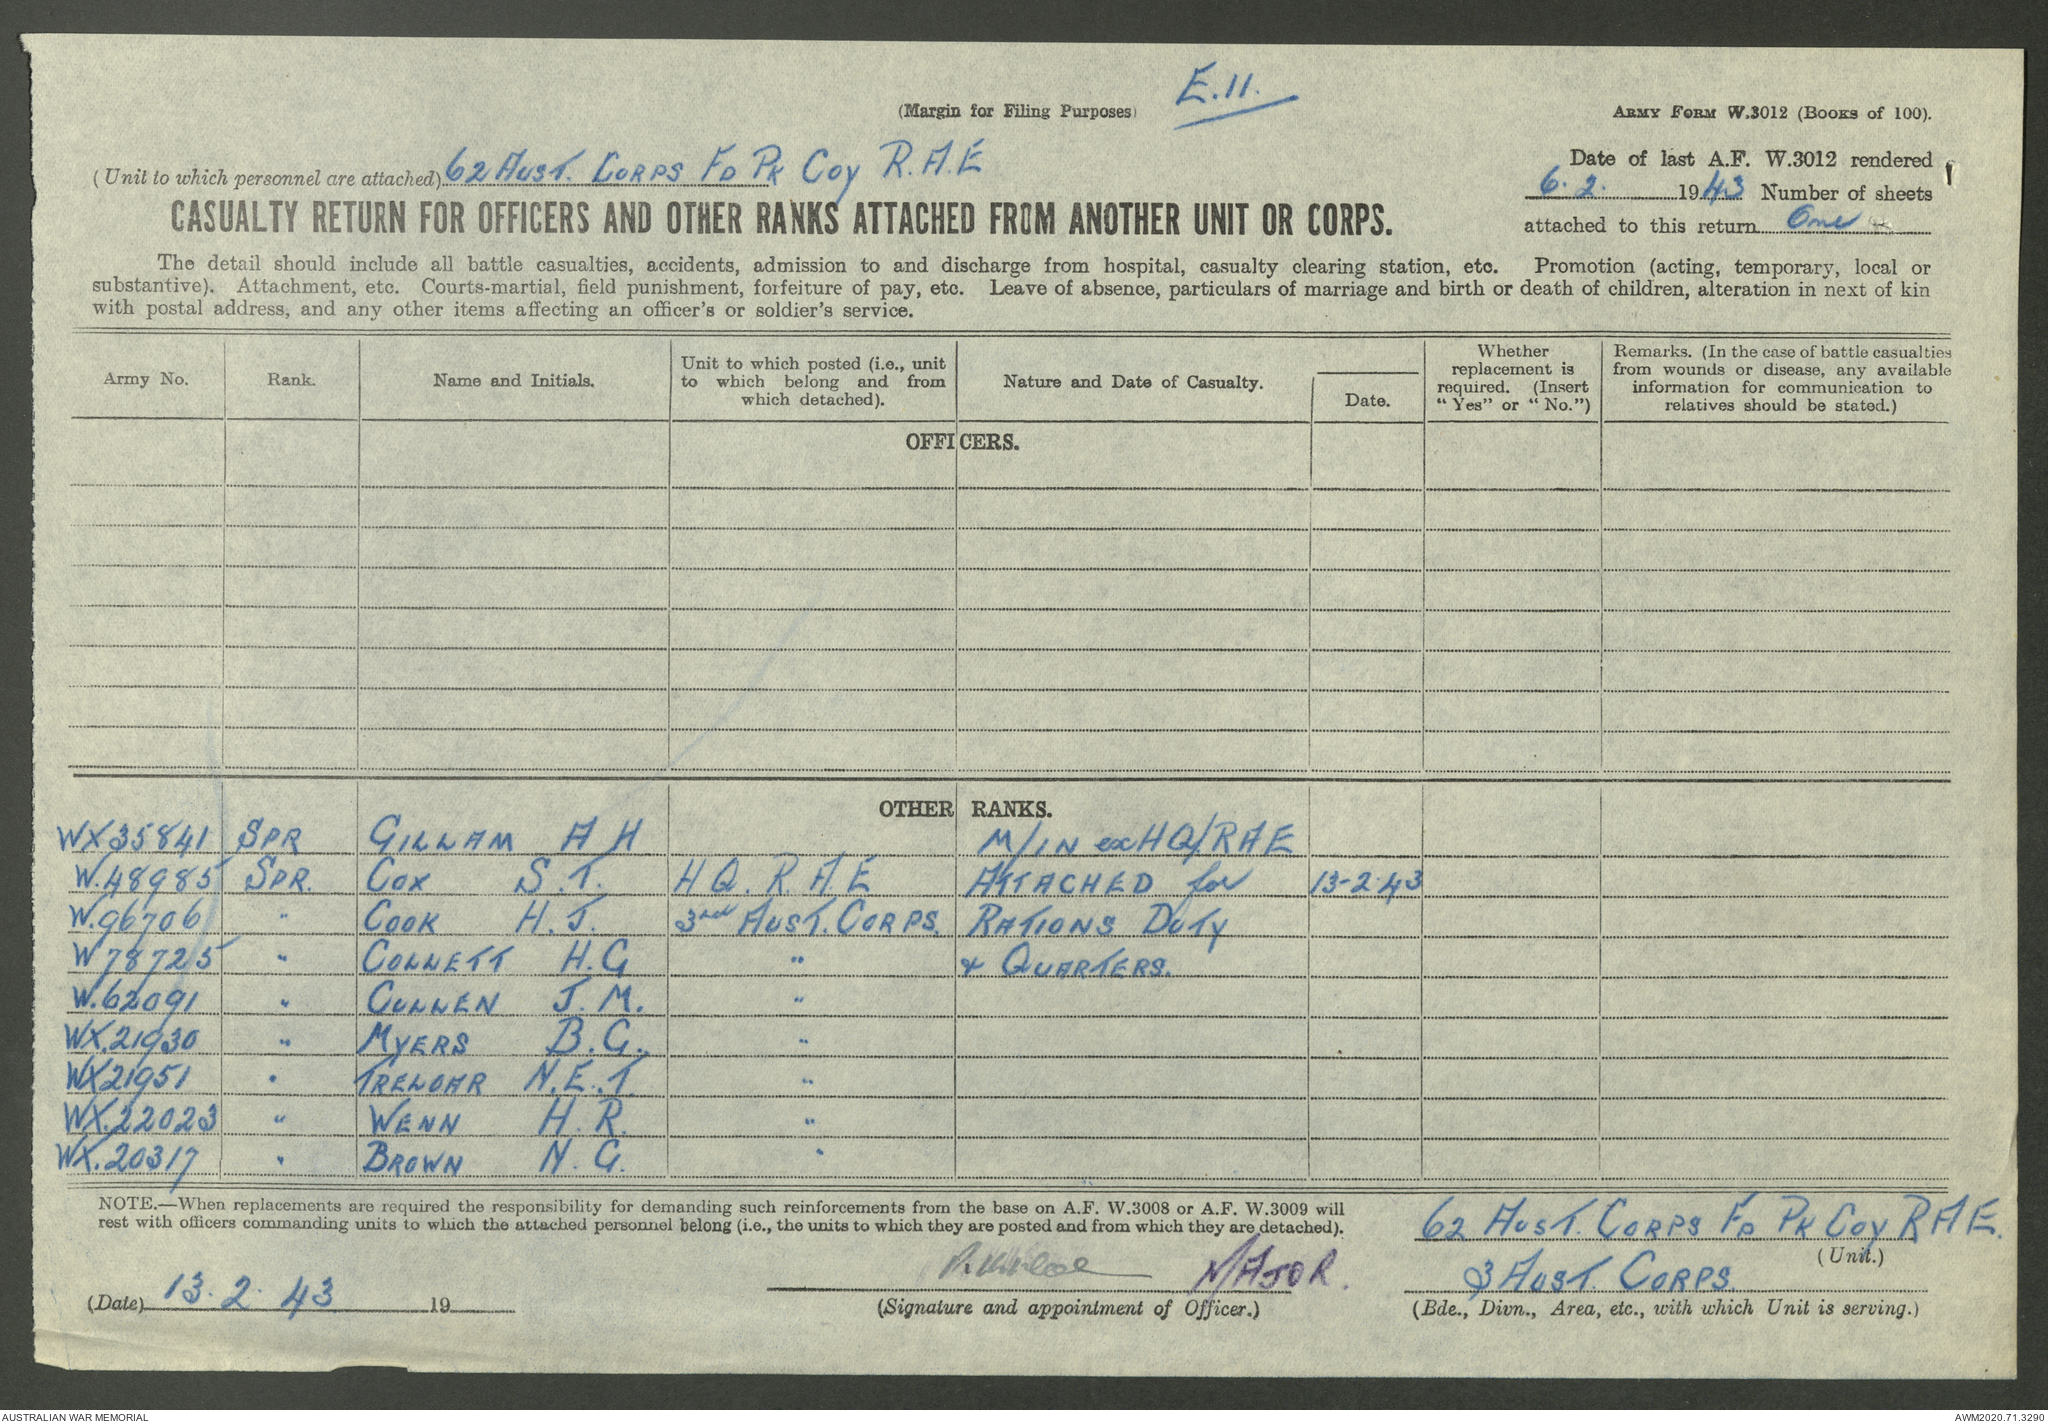 E.11.
(Margin for Filing Purposes)
ARMY FORM W.3012 (BOOKS of 100).
(Unit to which personnel are attached) 62 AUST. CORPS FD PK COY R.A.E
Date of last A.F. W.3012 rendered
6.2. 1943 Number of sheets
attached to this return One
CASUALTY RETURN FOR OFFICERS AND OTHER RANKS ATTACHED FROM ANOTHER UNIT OR CORPS.
The detail should include all battle casualties, accidents, admission to and discharge from hospital, casualty clearing station, etc. Promotion (acting, temporary, local or
substantive). Attachment, etc. Courts-martial, field punishment, forfeiture of pay, etc. Leave of absence, particulars of marriage and birth or death of children, alteration in next of kin
with postal address, and any other items affecting an officer's or soldier's service.
Army No.
Rank.
Name and Initials.
Unit to which posted (i.e., unit
to which belong and from
which detached).
Nature and Date of Casualty.
Date.
Whether
replacement is
required. (Insert
"Yes" or "No.")
Remarks. (In the case of battle casualties
from wounds or disease, any available
information for communication to
relatives should be stated.)
OFFICERS.
OTHER RANKS.
WX35841 SPR GILLAM A H M/IN ex HQ/RAE
W.48985 SPR. COX S.T. H Q. R. A. E ATTACHED for 13-2-43
W.96706 " COOK H.J. 3rd AUST. CORPS. RATIONS DUTY
W78725 " COLLETT H.G " & QUARTERS.
W.62091 " CULLEN J.M. "
WX.21930 " MYERS B.G. "
WX21951 " TRELOAR N.E.T "
WX.22023 " WENN H.R. "
WX.20317 " BROWN N.G. "
NOTE.—When replacements are required the responsibility for demanding such reinforcements from the base on A.F. W.3008 or A.F. W.3009 will
rest with officers commanding units to which the attached personnel belong (i.e., the units to which they are posted and from which they are detached).
62 AUST. CORPS FD PK COY RAE.
(Unit.)
MAJOR.
3 AUST. CORPS.
(Date) 13. 2. 43 19
(Signature and appointment of Officer.)
(Bde., Divn., Area, etc., with which Unit is serving.)
AUSTRALIAN WAR MEMORIAL
AWM2020.71.3290